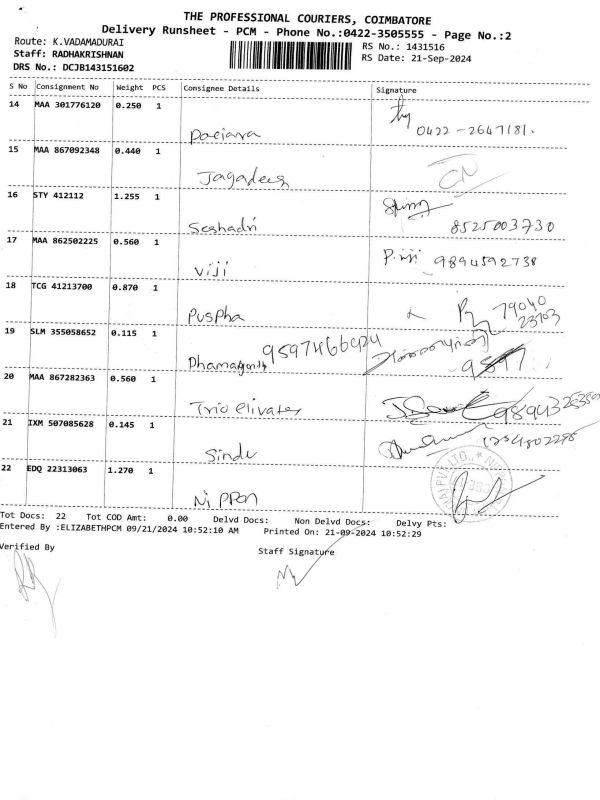 THE PROFESSIONAL COURIERS, COIMBATORE
Delivery Runsheet - PCM - Phone No.:0422-3505555 - Page No.:2
Route: K.VADAMADURAI
RS No.: 1431516
Staff: RADHAKRISHNAN
RS Date: 21-Sep-2024
DRS No.: DCJB143151602
S No Consignment No Weight PCS Consignee Details Signature
14 MAA 301776120 0.250 1
0422-2647181.
15 MAA 867092348 0.440 1
Jagadeesh
16 STY 412112 1.255 1
Seshadri 8525003730
17 MAA 862502225 0.560 1
Viji 9894592738
18 TCG 41213700 0.870 1
Puspha 79040
23703
19 SLM 355058652 0.115 1
20 MAA 867282363 0.560 1
Trio elivates
21 IXM 507085628 0.145 1
Sindu
22 EDQ 22313063 1.270 1
Nippon
Tot Docs: 22 Tot COD Amt: 0.00 Delvd Docs: Non Delvd Docs: Delvy Pts:
Entered By :ELIZABETHPCM 09/21/2024 10:52:10 AM Printed On: 21-09-2024 10:52:29
Verified By
Staff Signature